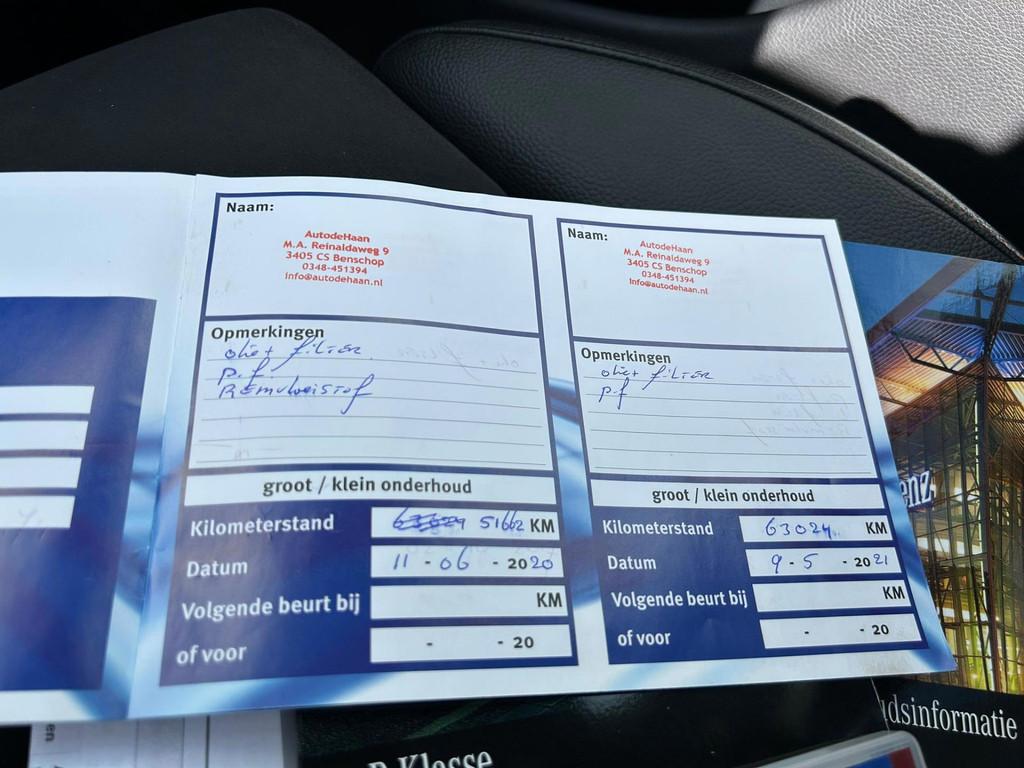 Naam:
AutodeHaan
M.A. Reinaldaweg 9
3405 CS Benschop
0348-451394
info@autodehaan.nl
Opmerkingen
olie + filter
p.f.
Remvloeistof
groot / klein onderhoud
Kilometerstand 63024 51662 KM
Datum 11 - 06 - 2020
Volgende beurt bij KM
of voor - - 20
Naam:
AutodeHaan
M.A. Reinaldaweg 9
3405 CS Benschop
0348-451394
info@autodehaan.nl
Opmerkingen
olie + filter
p.f
groot / klein onderhoud
Kilometerstand 63024 KM
Datum 9 - 5 - 2021
Volgende beurt bij KM
of voor - - 20
enz
udsinformatie
B-Klasse
en